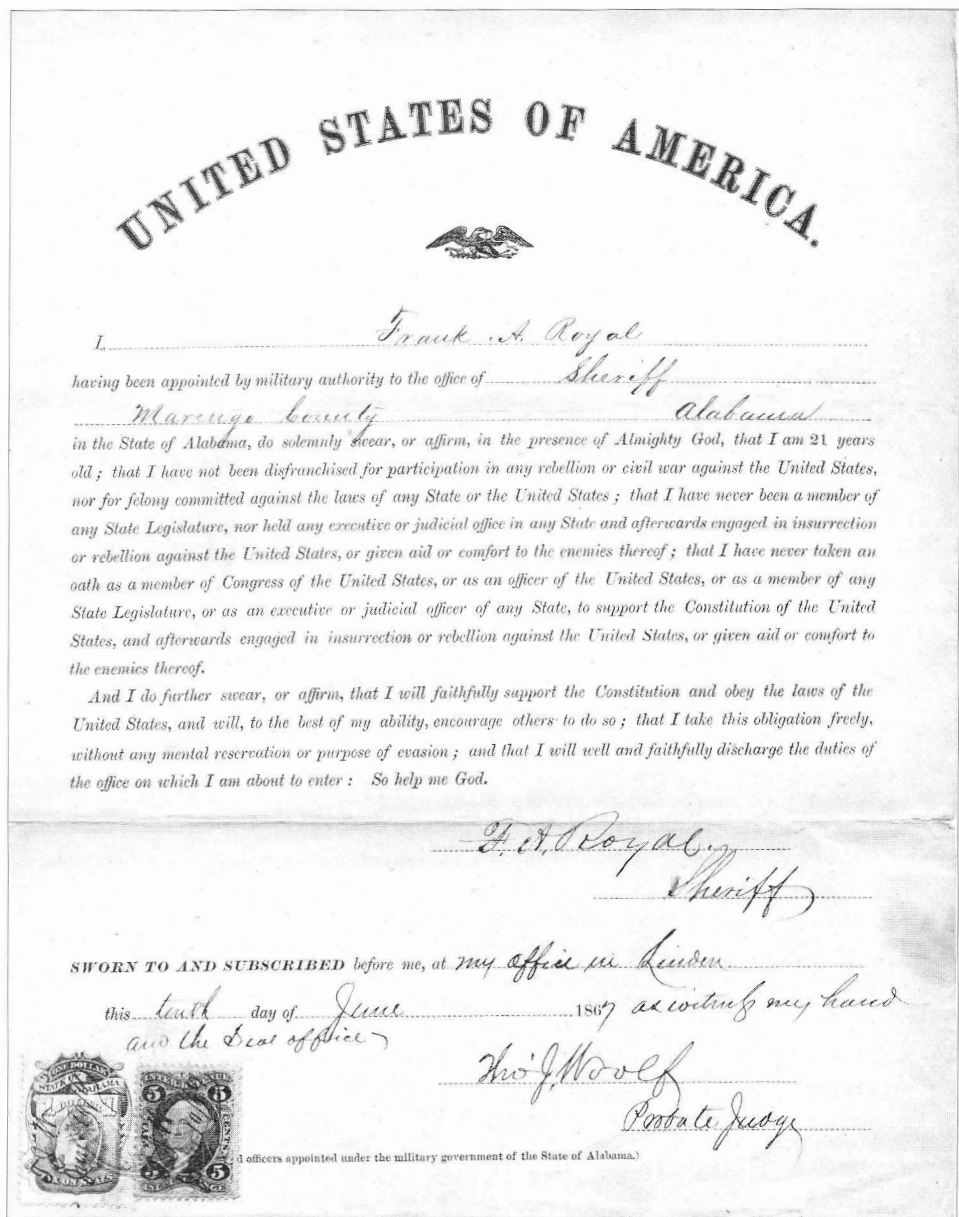 UNITED STATES OF AMERICA.
I, Frank A. Royal
having been appointed by military authority to the office of Sheriff
Marengo County Alabama
in the State of Alabama, do solemnly swear, or affirm, in the presence of Almighty God, that I am 21 years
old; that I have not been disfranchised for participation in any rebellion or civil war against the United States,
nor for felony committed against the laws of any State or the United States; that I have never been a member of
any State Legislature, nor held any executive or judicial office in any State and afterwards engaged in insurrection
or rebellion against the United States, or given aid or comfort to the enemies thereof; that I have never taken an
oath as a member of Congress of the United States, or as an officer of the United States, or as a member of any
State Legislature, or as an executive or judicial officer of any State, to support the Constitution of the United
States, and afterwards engaged in insurrection or rebellion against the United States, or given aid or comfort to
the enemies thereof.
And I do further swear, or affirm, that I will faithfully support the Constitution and obey the laws of the
United States, and will, to the best of my ability, encourage others to do so; that I take this obligation freely,
without any mental reservation or purpose of evasion; and that I will well and faithfully discharge the duties of
the office on which I am about to enter: So help me God.
F. A. Royal
Sheriff
SWORN TO AND SUBSCRIBED before me, at my office in Linden
this tenth day of June 1867 as witness my hand
and the Seal office
Tho' J. Woolf
Probate Judge
ONE DOLLAR
STATE OF ALABAMA
5 5
CENTS
5 5
d officers appointed under the military government of the State of Alabama.)